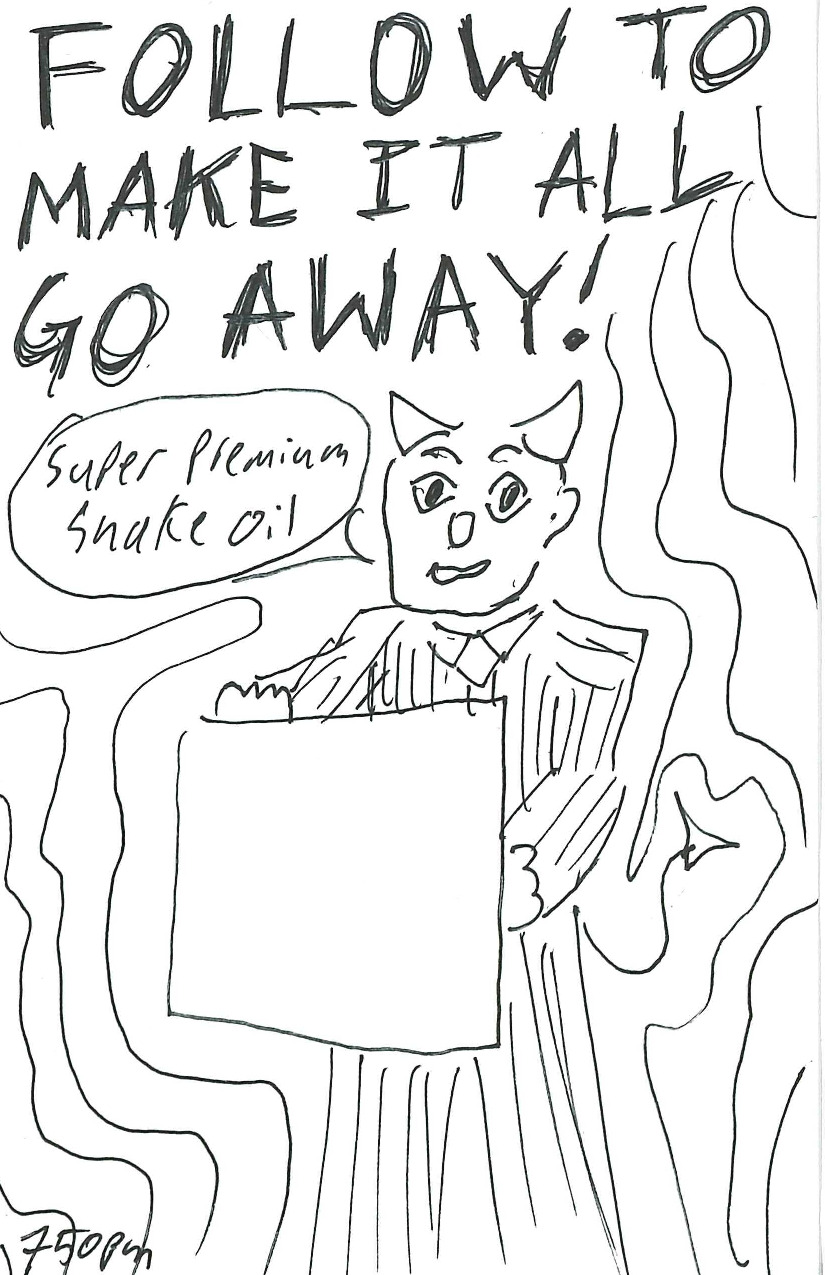 FOLLOW TO
MAKE IT ALL
GO AWAY!
Super Premium
Snake Oil
750pm